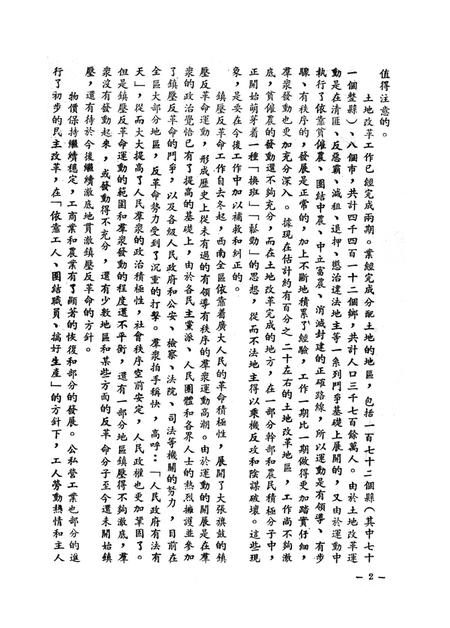 值得注意的。
土地改革工作已經完成兩期。業經完成分配土地的地區，包括一百七十二個縣（其中七十
一個整縣）、八個市，共計四千四百一十二個鄉，共計人口三千七百餘萬人。由於土地改革運
動是在清匪、反惡霸、減租、退押、懲治違法地主等一系列鬥爭基礎上展開的，又由於運動中
執行了依靠貧僱農、團結中農、中立富農、消滅封建的正確路線，所以運動是有領導、有步
驟、有秩序的，發展是正常的，加上不斷地積累了經驗，工作一期比一期做得更加踏實仔細，
羣衆發動也更加充分深入。據現在估計約有百分之二十左右的土地改革地區，工作尚不夠澈
底，貧僱農的發動還不夠充分，而在土地改革完成的地方，在一部分幹部和農民積極分子中，
正開始萌芽着一種「換班」「鬆勁」的思想，從而不法地主得以乘機反攻和陰謀破壞。這些現
象，是要在今後工作中加以補救和糾正的。
鎮壓反革命工作自去冬起，西南全區依靠着廣大人民的革命積極性，展開了大張旗鼓的鎮
壓反革命運動，形成歷史上從未有過的有領導有秩序的羣衆運動高潮。由於運動的開展是在羣
衆的政治覺悟已有了提高的基礎上，由於各民主黨派、人民團體和各界人士的熱烈擁護並參加
了鎮壓反革命的鬥爭，以及各級人民政府和公安、檢察、法院、司法等機關的努力，目前在
全區大部分地區，反革命勢力受到了沉重的打擊。羣衆拍手稱快，高呼：「人民政府有法有
天」，從而大大提高了人民羣衆的政治積極性，社會秩序空前安定，人民政權也更加鞏固了。
但是鎮壓反革命運動的範圍和羣衆發動的程度還不平衡，還有一部分地區鎮壓得不夠澈底，羣
衆沒有發動起來，或發動得不充分，還有少數地區和某些方面的反革命分子至今還未開始鎮
壓，還有待於今後繼續澈底地貫澈鎮壓反革命的方針。
物價保持繼續穩定，工商業和農業有了顯著的恢復和部分的發展。公私營工業也部分的進
行了初步的民主改革，在「依靠工人、團結職員、搞好生產」的方針下，工人勞動熱情和主人
— 2 —